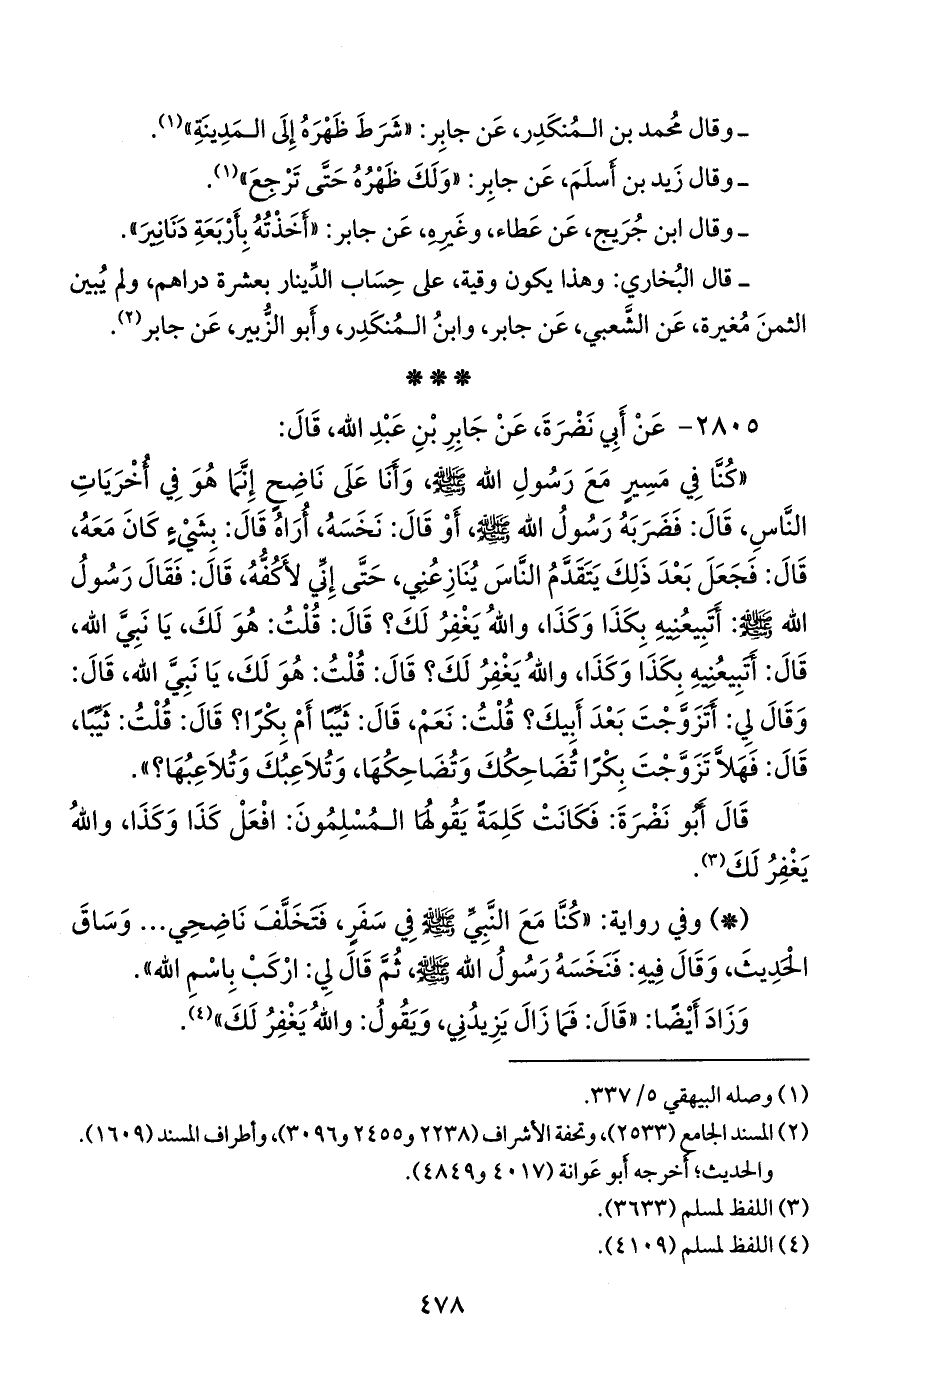 ـ وقال محُمد بن الـمُنكَدِر، عَن جابِر: «شَرَطَ ظَهْرَهُ إِلَى الـمَدِينَةِ»(١).
ـ وقال زَيد بن أَسلَمَ، عَن جابِر: «وَلَكَ ظَهْرُهُ حَتَّى تَرْجِعَ»(١).
ـ وقال ابن جُرَيج، عَن عَطاء، وغَيرِهِ، عَن جابر: «أَخَذْتُهُ بِأَرْبَعَةِ دَنَانِيرَ».
ـ قال البُخاري: وهذا يكون وقية، على حِسَاب الدِّينار بعشرة دراهم، ولم يُبين
الثمنَ مُغيرة، عَن الشَّعبي، عَن جابر، وابنُ الـمُنكَدِر، وأَبو الزُّبير، عَن جابر(٢).
* * *
٢٨٠٥- عَنْ أَبِي نَضْرَةَ، عَنْ جَابِرِ بْنِ عَبْدِ الله، قَالَ:
«كُنَّا فِي مَسِيرٍ مَعَ رَسُولِ الله ﷺ، وَأَنَا عَلَى نَاضِحٍ إِنَّمَا هُوَ فِي أُخْرَيَاتِ
النَّاسِ، قَالَ: فَضَرَبَهُ رَسُولُ الله ﷺ، أَوْ قَالَ: نَخَسَهُ، أُرَاهُ قَالَ: بِشَيْءٍ كَانَ مَعَهُ،
قَالَ: فَجَعَلَ بَعْدَ ذَلِكَ يَتَقَدَّمُ النَّاسَ يُنَازِعُنِي، حَتَّى إِنِّي لأَكُفُّهُ، قَالَ: فَقَالَ رَسُولُ
الله ﷺ: أَتَبِيعُنِيهِ بِكَذَا وَكَذَا، واللهُ يَغْفِرُ لَكَ؟ قَالَ: قُلْتُ: هُوَ لَكَ، يَا نَبِيَّ الله،
قَالَ: أَتَبِيعُنِيهِ بِكَذَا وَكَذَا، واللهُ يَغْفِرُ لَكَ؟ قَالَ: قُلْتُ: هُوَ لَكَ، يَا نَبِيَّ الله، قَالَ:
وَقَالَ لِي: أَتَزَوَّجْتَ بَعْدَ أَبِيكَ؟ قُلْتُ: نَعَمْ، قَالَ: ثَيِّبًا أَمْ بِكْرًا؟ قَالَ: قُلْتُ: ثَيِّبًا،
قَالَ: فَهَلاَّ تَزَوَّجْتَ بِكْرًا تُضَاحِكُكَ وَتُضَاحِكُهَا، وَتُلاَعِبُكَ وَتُلاَعِبُهَا؟».
قَالَ أَبُو نَضْرَةَ: فَكَانَتْ كَلِمَةً يَقُولُهَا الـمُسْلِمُونَ: افْعَلْ كَذَا وَكَذَا، واللهُ
يَغْفِرُ لَكَ(٣).
(*) وفي رواية: «كُنَّا مَعَ النَّبِيِّ ﷺ فِي سَفَرٍ، فَتَخَلَّفَ نَاضِحِي... وَسَاقَ
الْحَدِيثَ، وَقَالَ فِيهِ: فَنَخَسَهُ رَسُولُ الله ﷺ، ثُمَّ قَالَ لِي: ارْكَبْ بِاسْمِ الله».
وَزَادَ أَيْضًا: «قَالَ: فَمَا زَالَ يَزِيدُنِي، وَيَقُولُ: واللهُ يَغْفِرُ لَكَ»(٤).
(١) وصله البيهقي ٥/ ٣٣٧.
(٢) المسند الجامع (٢٥٣٣)، وتحفة الأشراف (٢٢٣٨ و٢٤٥٥ و٣٠٩٦)، وأطراف المسند (١٦٠٩).
والحديث؛ أخرجه أبو عَوانة (٤٠١٧ و٤٨٤٩).
(٣) اللفظ لمسلم (٣٦٣٣).
(٤) اللفظ لمسلم (٤١٠٩).
٤٧٨